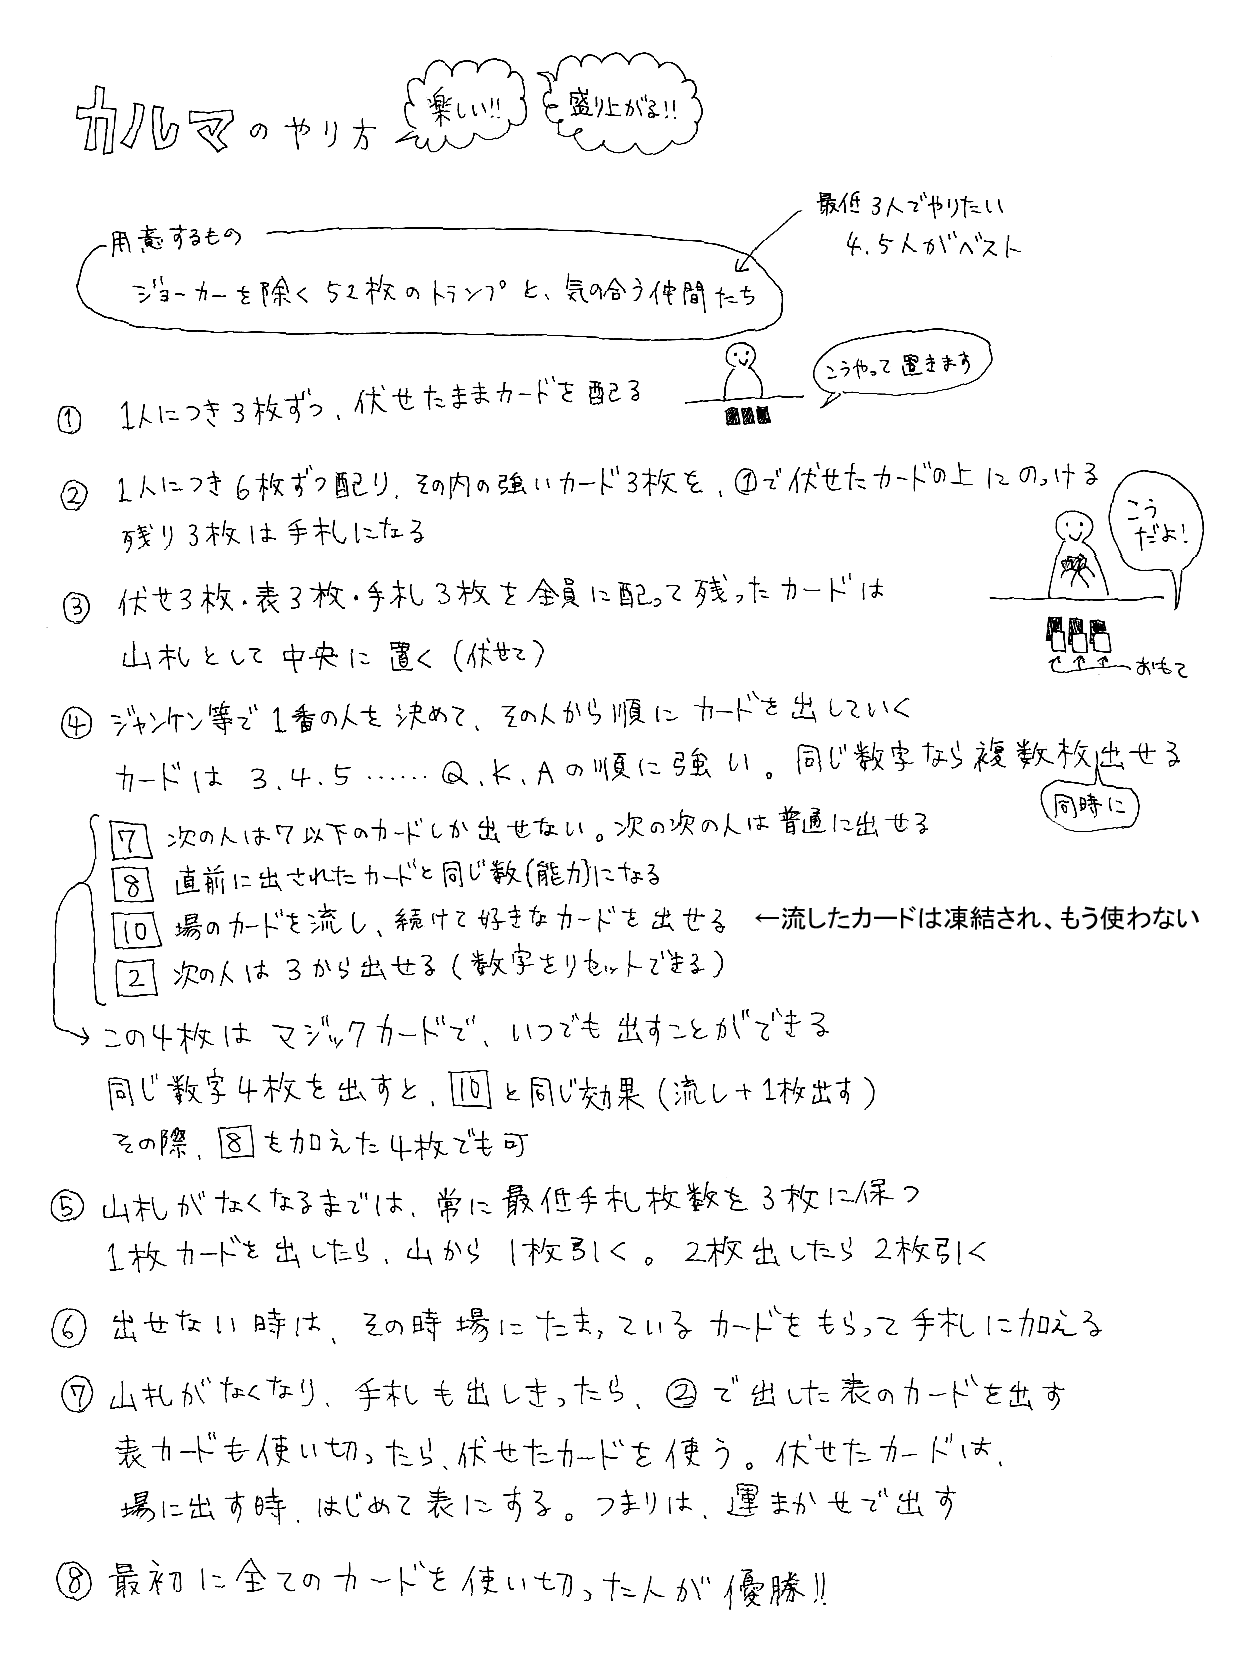 カルマのやり方
楽しい!!
盛り上がる!!
最低3人でやりたい
4.5人がベスト
用意するもの
ジョーカーを除く52枚のトランプと、気の合う仲間たち
① 1人につき3枚ずつ、伏せたままカードを配る
こうやって置きます
② 1人につき6枚ずつ配り、その内の強いカード3枚を、①で伏せたカードの上にのっける
残り3枚は手札になる
こう
だよ!
③ 伏せ3枚・表3枚・手札3枚を全員に配って残ったカードは
山札として中央に置く(伏せて)
おもて
④ ジャンケン等で1番の人を決めて、その人から順にカードを出していく
カードは3.4.5……Q.K.Aの順に強い。同じ数字なら複数枚出せる
同時に
7 次の人は7以下のカードしか出せない。次の次の人は普通に出せる
8 直前に出されたカードと同じ数(能力)になる
10 場のカードを流し、続けて好きなカードを出せる ←流したカードは凍結され、もう使わない
2 次の人は3から出せる(数字をリセットできる)
この4枚はマジックカードで、いつでも出すことができる
同じ数字4枚を出すと、10と同じ効果(流し+1枚出す)
その際、8を加えた4枚でも可
⑤ 山札がなくなるまでは、常に最低手札枚数を3枚に保つ
1枚カードを出したら、山から1枚引く。2枚出したら2枚引く
⑥ 出せない時は、その時場にたまっているカードをもらって手札に加える
⑦ 山札がなくなり、手札も出しきったら、②で出した表のカードを出す
表カードも使い切ったら、伏せたカードを使う。伏せたカードは、
場に出す時、はじめて表にする。つまりは、運まかせで出す
⑧ 最初に全てのカードを使い切った人が優勝!!